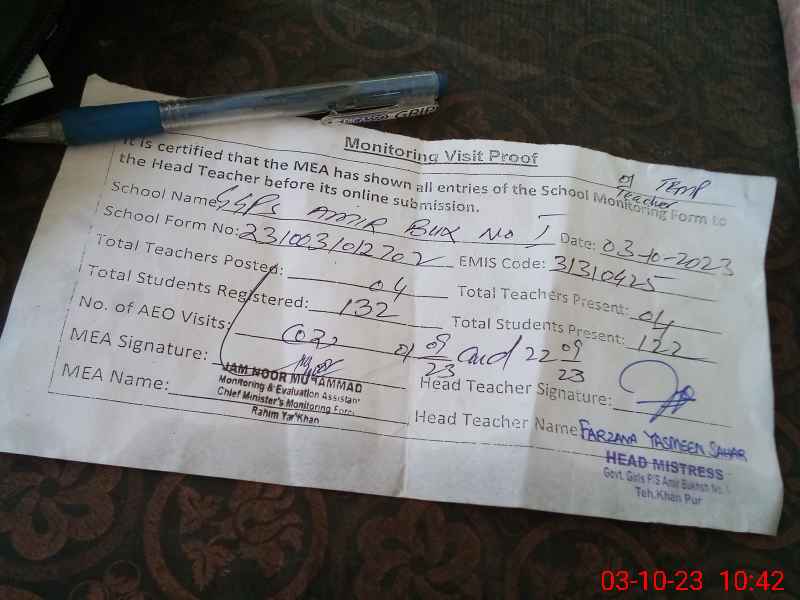 GRIP
Monitoring Visit Proof
01 TEMP
Teacher
It is certified that the MEA has shown all entries of the School Monitoring Form to
the Head Teacher before its online submission.
School Name: GGPS AMIR BUX No I Date: 03-10-2023
School Form No: 2310031012702 EMIS Code: 31310425
Total Teachers Posted: 04 Total Teachers Present: 04
Total Students Registered: 132 Total Students Present: 122
No. of AEO Visits: 02 01 09/23 and 22 09/23
MEA Signature: Head Teacher Signature:
MEA Name: Head Teacher Name: FARZANA YASMEEN SAHAR
JAM NOOR MUHAMMAD
Monitoring & Evaluation Assistant
Chief Minister's Monitoring Force
Rahim Yar Khan
HEAD MISTRESS
Govt. Girls P/S Amir Bukhsh No. 1
Teh. Khan Pur
03-10-23 10:42